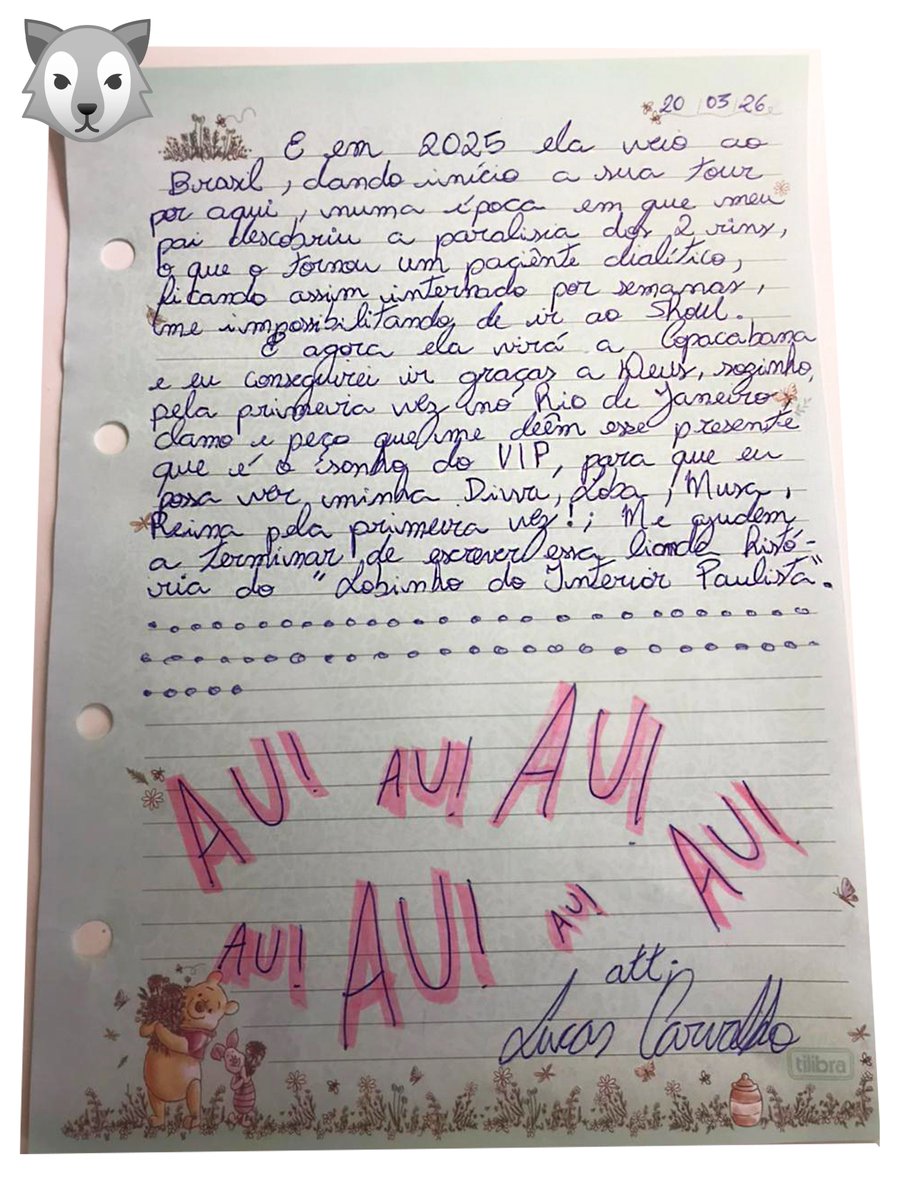 20 03 26
E em 2025 ela veio ao
Brasil, dando início a sua tour
por aqui, numa época em que meu
pai descobriu a paralisia dos 2 rins,
o que o tornou um paciênte dialítico,
ficando assim internado por semanas,
me impossibilitando de ir ao Show.
E agora ela virá a Copacabana
e eu conseguirei ir graças a Deus, sozinho,
pela primeira vez no Rio de Janeiro,
clamo e peço que me dêêm esse presente
que é o sonho do VIP, para que eu
possa ver minha Diva, Loba, Musa,
Rainha pela primeira vez!; Me ajudem
a terminar de escrever essa linda histó-
ria do "Lobinho do Interior Paulista".
AUI! AUI! AUI
AUI!
AUI! AUI! AUI!
att;
Lucas Carvalho
tilibra